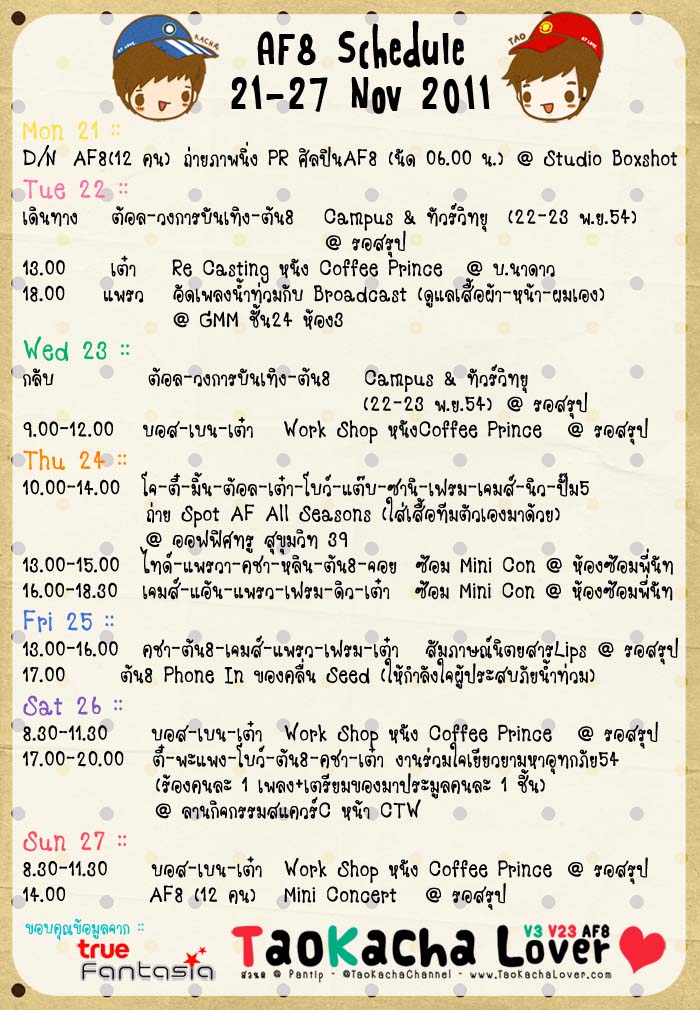 KACHA
TAO
AF8 Schedule
21-27 Nov 2011
Mon 21 ::
D/N AF8(12 คน) ถ่ายภาพนิ่ง PR ศิลปินAF8 (นัด 06.00 น.) @ Studio Boxshot
Tue 22 ::
เดินทาง ต้อล-วงการบันเทิง-ตัน8 Campus & ทัวร์วิทยุ (22-23 พ.ย.54)
@ รอสรุป
13.00 เต๋า Re Casting หนัง Coffee Prince @ บ.นาดาว
18.00 แพรว อัดเพลงน้ำท่วมกับ Broadcast (ดูแลเสื้อผ้า-หน้า-ผมเอง)
@ GMM ชั้น24 ห้อง3
Wed 23 ::
กลับ ต้อล-วงการบันเทิง-ตัน8 Campus & ทัวร์วิทยุ
(22-23 พ.ย.54) @ รอสรุป
9.00-12.00 บอส-เบน-เต๋า Work Shop หนังCoffee Prince @ รอสรุป
Thu 24 ::
10.00-14.00 โจ-ตี๋-มิ้น-ต้อล-เต๋า-โบว์-แต๊บ-ซานิ-เฟรม-เจมส์-นิว-ปั๊ม5
ถ่าย Spot AF All Seasons (ใส่เสื้อทีมตัวเองมาด้วย)
@ ออฟฟิศทรู สุขุมวิท 39
13.00-15.00 ไทด์-แพรวา-คชา-หลิน-ตัน8-จอย ซ้อม Mini Con @ ห้องซ้อมพี่นัท
16.00-18.30 เจมส์-แอ้น-แพรว-เฟรม-ดิว-เต๋า ซ้อม Mini Con @ ห้องซ้อมพี่นัท
Fri 25 ::
13.00-16.00 คชา-ตัน8-เจมส์-แพรว-เฟรม-เต๋า สัมภาษณ์นิตยสารLips @ รอสรุป
17.00 ตัน8 Phone In ของคลื่น Seed (ให้กำลังใจผู้ประสบภัยน้ำท่วม)
Sat 26 ::
8.30-11.30 บอส-เบน-เต๋า Work Shop หนัง Coffee Prince @ รอสรุป
17.00-20.00 ตี๋-พะแพง-โบว์-ตัน8-คชา-เต๋า งานร่วมใจเยียวยามหาอุทกภัย54
(ร้องคนละ 1 เพลง+เตรียมของมาประมูลคนละ 1 ชิ้น)
@ ลานกิจกรรมสแควร์C หน้า CTW
Sun 27 ::
8.30-11.30 บอส-เบน-เต๋า Work Shop หนัง Coffee Prince @ รอสรุป
14.00 AF8 (12 คน) Mini Concert @ รอสรุป
ขอบคุณข้อมูลจาก ::
true
Fantasia
V3 V23 AF8
TaoKacha Lover
@ Pantip - @TaoKachaChannel - www.TaoKachaLover.com